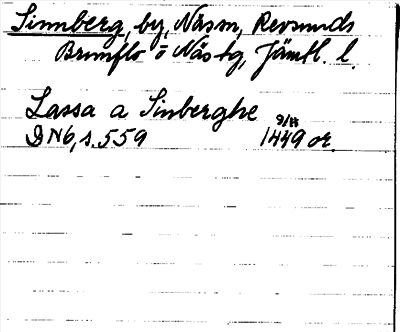 Sinnberg, by, Näsm, Revsunds
Brunflo o Näs tg, Jämtl. l.
Lassa a Sinberghe
DN6, s. 559 9/11 1449 or.